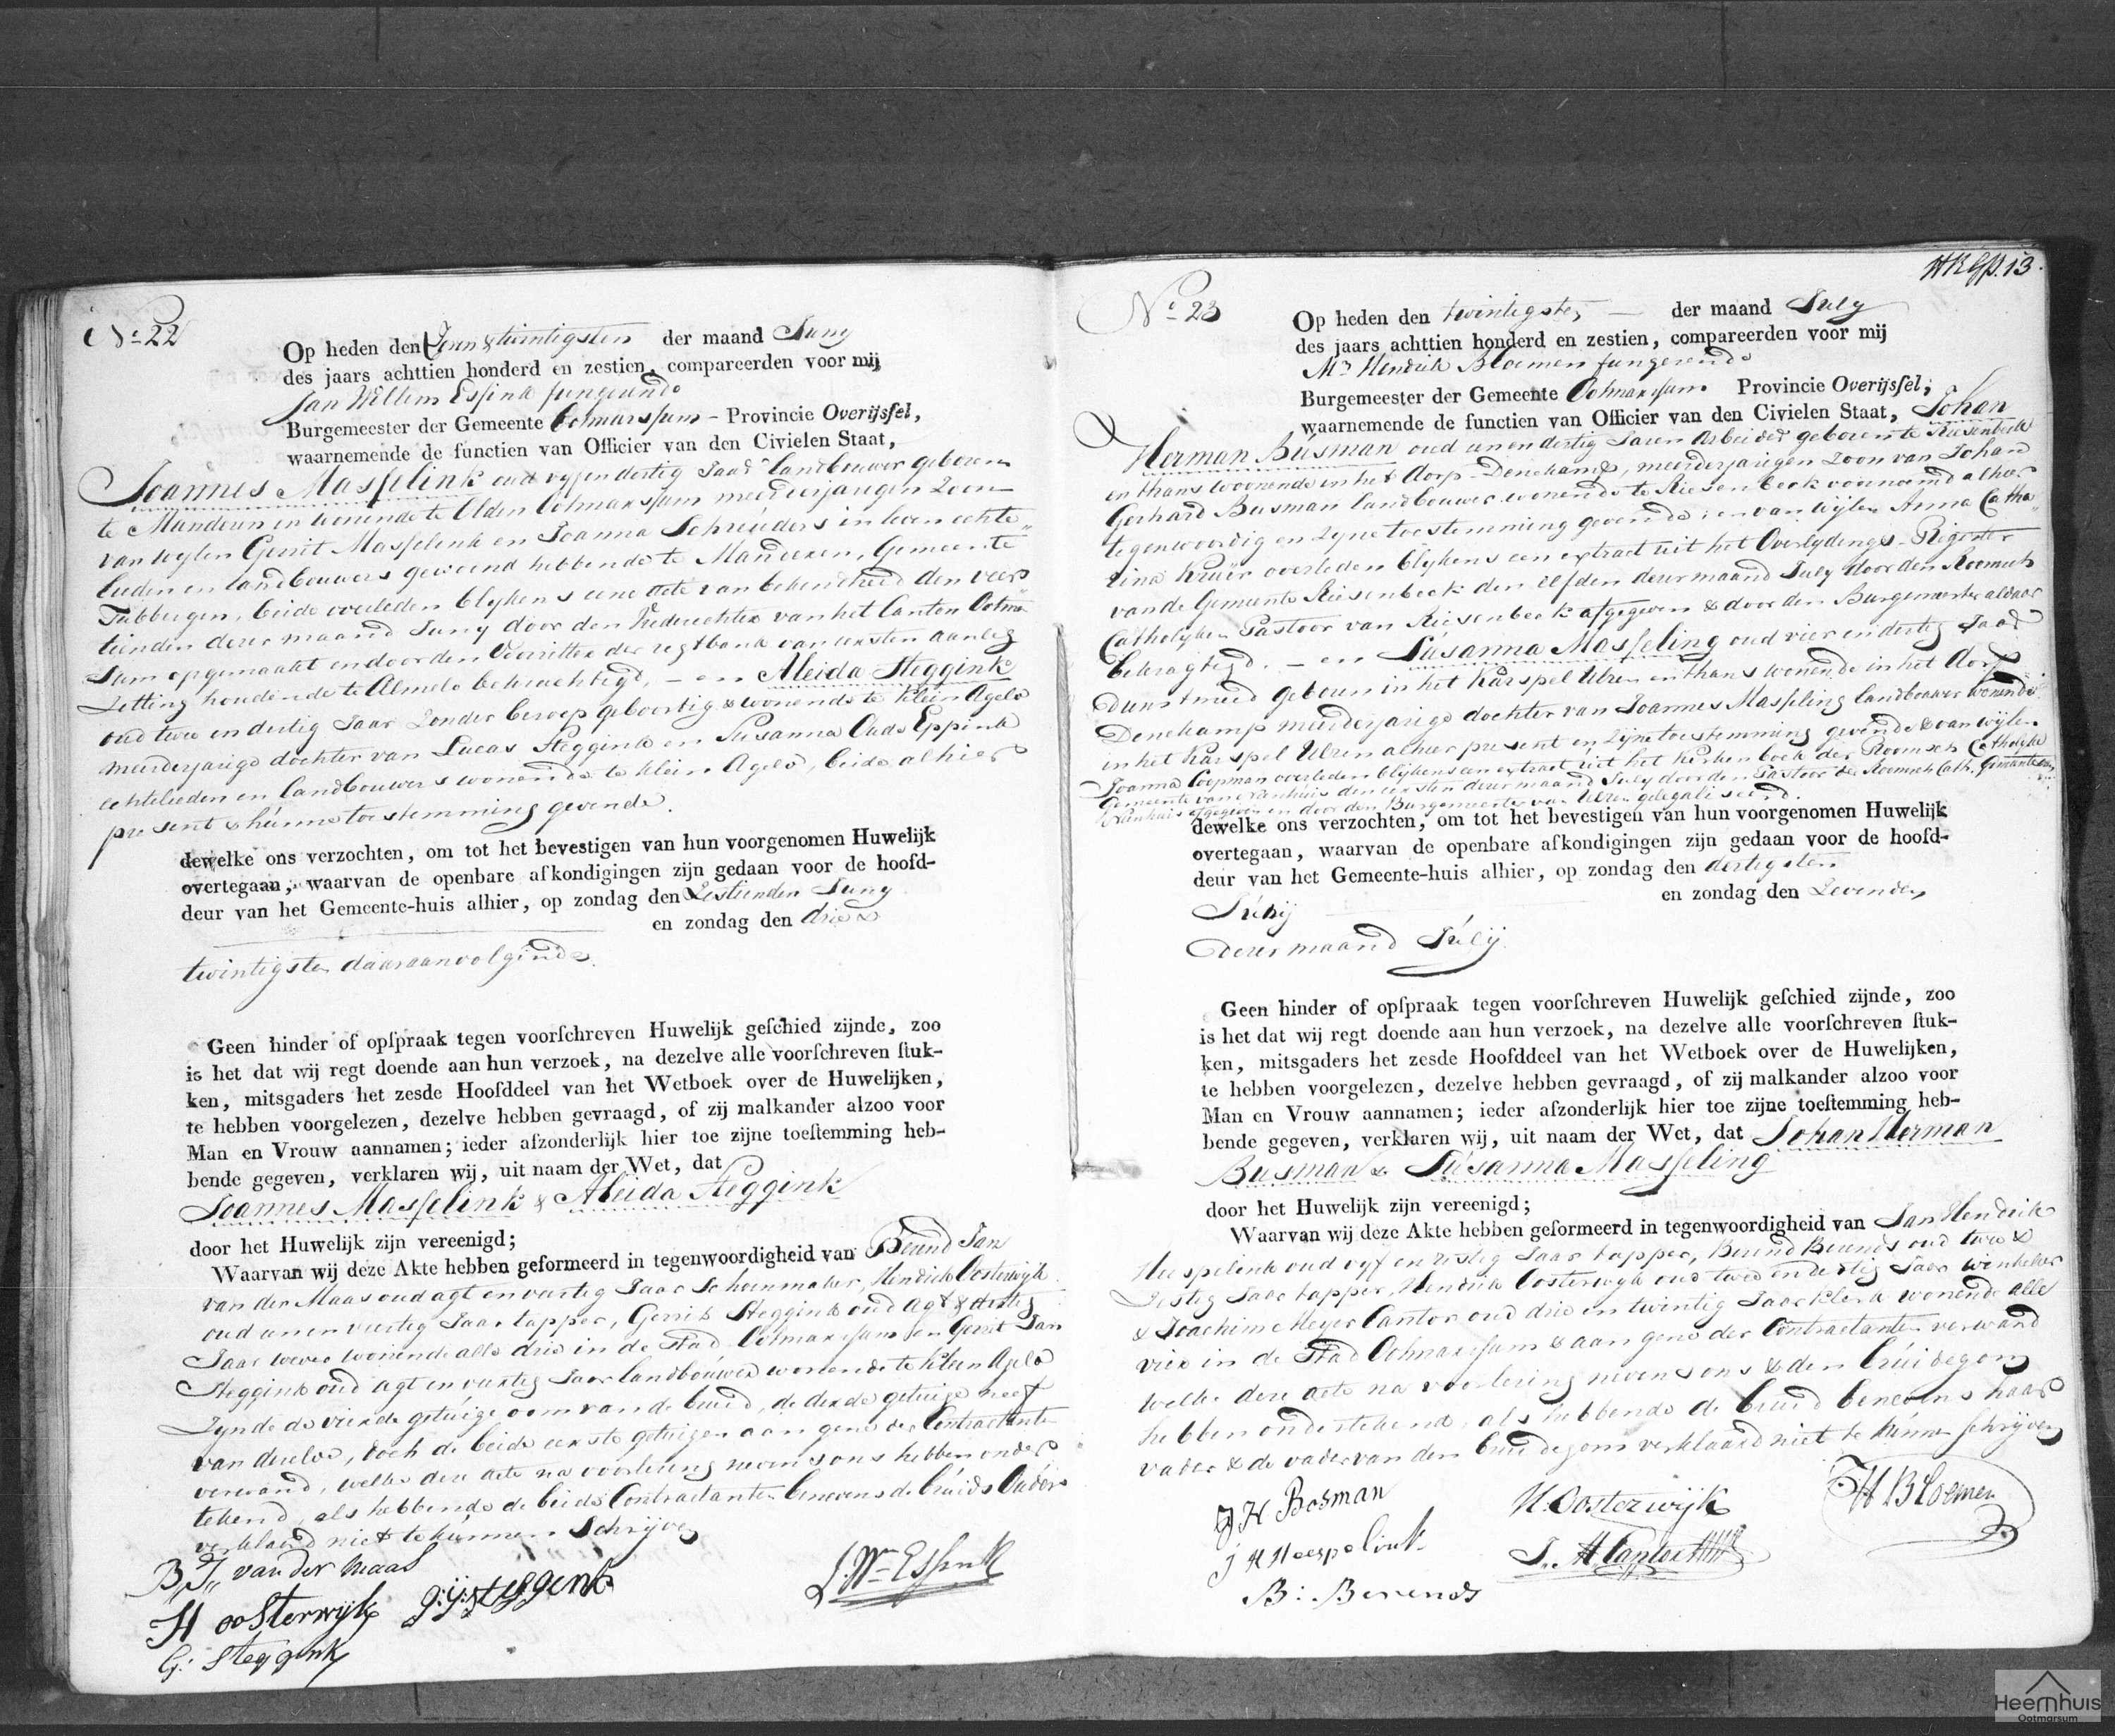 No. 22
Op heden den Zeven & twintigsten der maand Juny
des jaars achttien honderd en zestien, compareerden voor mij
Jan Willem Essink fungerend
Burgemeester der Gemeente Ootmarssum - Provincie Overijssel,
waarnemende de functien van Officier van den Civielen Staat,
Joannes Masselink oud vyfendertig Jaar Landbouwer geboren
te Manderen en wonende te Olden Ootmarssum meerderjarigen Zoon
van wylen Gerrit Masselink en Joanna Schreúders in leven echte
lieden en landbouwers gewoond hebbende te Manderen, Gemeente
Tubbergen, beide overleden blykens eene acte van bekendheid den veer
tienden dezer maand Juny door den Vrederechter van het Canton Ootmar
sum opgemaakt en door den Voorzitter der regtbank van eersten aanleg
Zitting houdende te Almelo bekrachtigd, - en Aleida Steggink
oud twee en dertig Jaar Zonder beroep geboortig & wonende te Klein Agelo
meerderjarige dochter van Lucas Steggink en Susanna Oude Eppink
echtelieden en landbouwers wonende te Klein Agelo, beide alhier
present & húnne toestemming gevende.
dewelke ons verzochten, om tot het bevestigen van hun voorgenomen Huwelijk
overtegaan, waarvan de openbare afkondigingen zijn gedaan voor de hoofd-
deur van het Gemeente-huis alhier, op zondag den Zestienden Juny
en zondag den drie &
twintigsten daaraanvolgende.
Geen hinder of opspraak tegen voorschreven Huwelijk geschied zijnde, zoo
is het dat wij regt doende aan hun verzoek, na dezelve alle voorschreven stuk-
ken, mitsgaders het zesde Hoofddeel van het Wetboek over de Huwelijken,
te hebben voorgelezen, dezelve hebben gevraagd, of zij malkander alzoo voor
Man en Vrouw aannamen; ieder afzonderlijk hier toe zijne toestemming heb-
bende gegeven, verklaren wij, uit naam der Wet, dat
Joannes Masselink & Aleida Steggink
door het Huwelijk zijn vereenigd;
Waarvan wij deze Akte hebben geformeerd in tegenwoordigheid van Berend Jan
van der Maas oud agt en veertig Jaar Schoenmaker, Hendrick Oosterwijk
oud een en veertig Jaar tapper, Gerrit Steggink oud agt & dertig
Jaar wever wonende alle drie in de Stad Ootmarssum en Gerrit Jan
Steggink oud agt en veertig Jaar landbouwer wonende te Klein Agelo
Zynde de vierde getuige oom van de bruid, de derde getuige neef
van dezelve, doch de beide eerste getuigen aan gene der Contractanten
verwand, welke deze acte na voorlezing nevens ons hebben onder
tekend, als hebbende de beide Contractanten benevens de brúids Ouders
verklaard niet te kúnnen Schrijven
B,,J,, van der maas
H oosterwijk
G: J: Steggink
G: Steggink
J. Wm Essink
No. 23
Op heden den twintigsten - der maand July
des jaars achttien honderd en zestien, compareerden voor mij
Mr. Hendrik Bloemen fungerend
Burgemeester der Gemeente Ootmarssum Provincie Overijssel,
waarnemende de functien van Officier van den Civielen Staat, Johan
Herman Búsman oud een en dertig Jaren Arbeider geboren te Riesenbeck
en thans woonende in het dorp Denekamp, meerderjarigen Zoon van Johan
Gerhard Busman landbouwer wonende te Riesenbeck voornoemd alhier
tegenwoordig en zyne toestemming gevende; en van wijlen Anna Catha
rina Kruër overleden blykens een extract uit het Overlydings-Register
van de Gemeente Riesenbeck den elfden dezer maand July door den Roomsch
Catholyken Pastoor van Riesenbeck afgegeven & door den Burgemeester aldaar
bekragtigd. - en Súsanna Masseling oud vier en dertig Jaar
Dienstmeid geboren in het Karspel Ulzen en thans wonende in het dorp
Denekamp meerderjarige dochter van Joannes Masseling landbouwer wonende
in het Karspel Ulzen alhier present en zijne toestemming gevende & van wijlen
Joanna Coopman overleden blykens een extract uit het Kerkenboek der Roomsch Catholyke
Gemeente van den eersten dezer maand July door den Pastoor der Roomsch Cath. Gemeente
afgegeven en door den Burgemeester van Ulzen gelegaliseerd.
dewelke ons verzochten, om tot het bevestigen van hun voorgenomen Huwelijk
overtegaan, waarvan de openbare afkondigingen zijn gedaan voor de hoofd-
deur van het Gemeente-huis alhier, op zondag den dertigsten
en zondag den Zevenden
dezer maand Júlij.
Geen hinder of opspraak tegen voorschreven Huwelijk geschied zijnde, zoo
is het dat wij regt doende aan hun verzoek, na dezelve alle voorschreven stuk-
ken, mitsgaders het zesde Hoofddeel van het Wetboek over de Huwelijken,
te hebben voorgelezen, dezelve hebben gevraagd, of zij malkander alzoo voor
Man en Vrouw aannamen; ieder afzonderlijk hier toe zijne toestemming heb-
bende gegeven, verklaren wij, uit naam der Wet, dat Johan Herman
Busman & Súsanna Masseling
door het Huwelijk zijn vereenigd;
Waarvan wij deze Akte hebben geformeerd in tegenwoordigheid van Jan Hendrik
Heespelink oud vyf en zestig Jaar tapper, Berend Berends oud twee &
Zestig Jaar tapper, Hendrik Oosterwyk oud twee en dertig Jaar winkelier
& Joachim Meyer Cantor oud drie en twintig Jaar klerk wonende alle
vier in de Stad Ootmarssum & aan gene der Contractanten verwand
welke deze acte na voorlezing nevens ons & den brúidegom
hebben ondertekend, als hebbende de bruid benevens haar
vader & de vader van den bruidegom verklaard niet te kúnnen schrijven
J H Bosman
J H Heespelink
B: Berends
H. Oosterwijk
J. M. Cantor
H Bloemen
Heemhuis
Ootmarsum